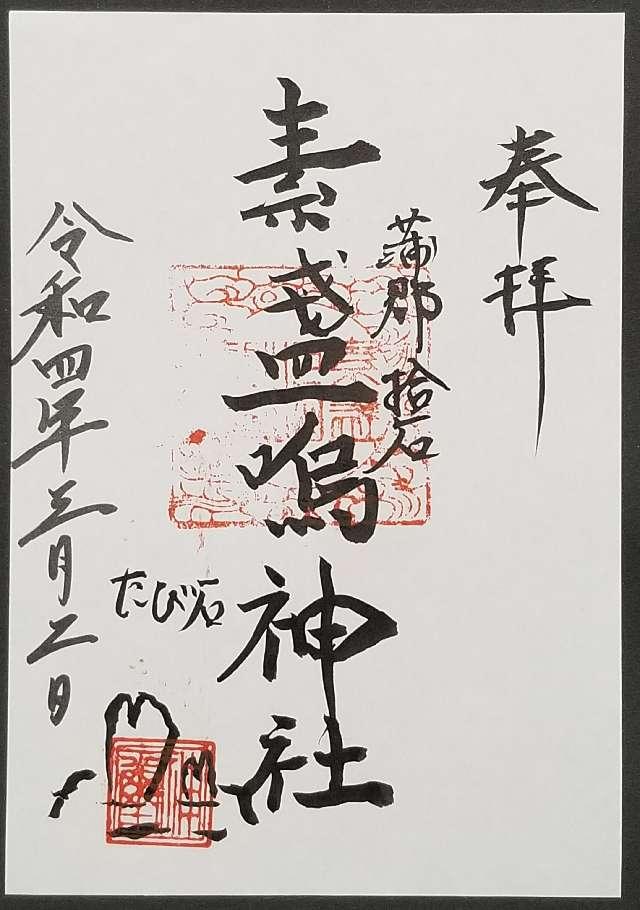 奉拝
蒲郡 拾石
素盞嗚神社
たび石
令和四年三月二日